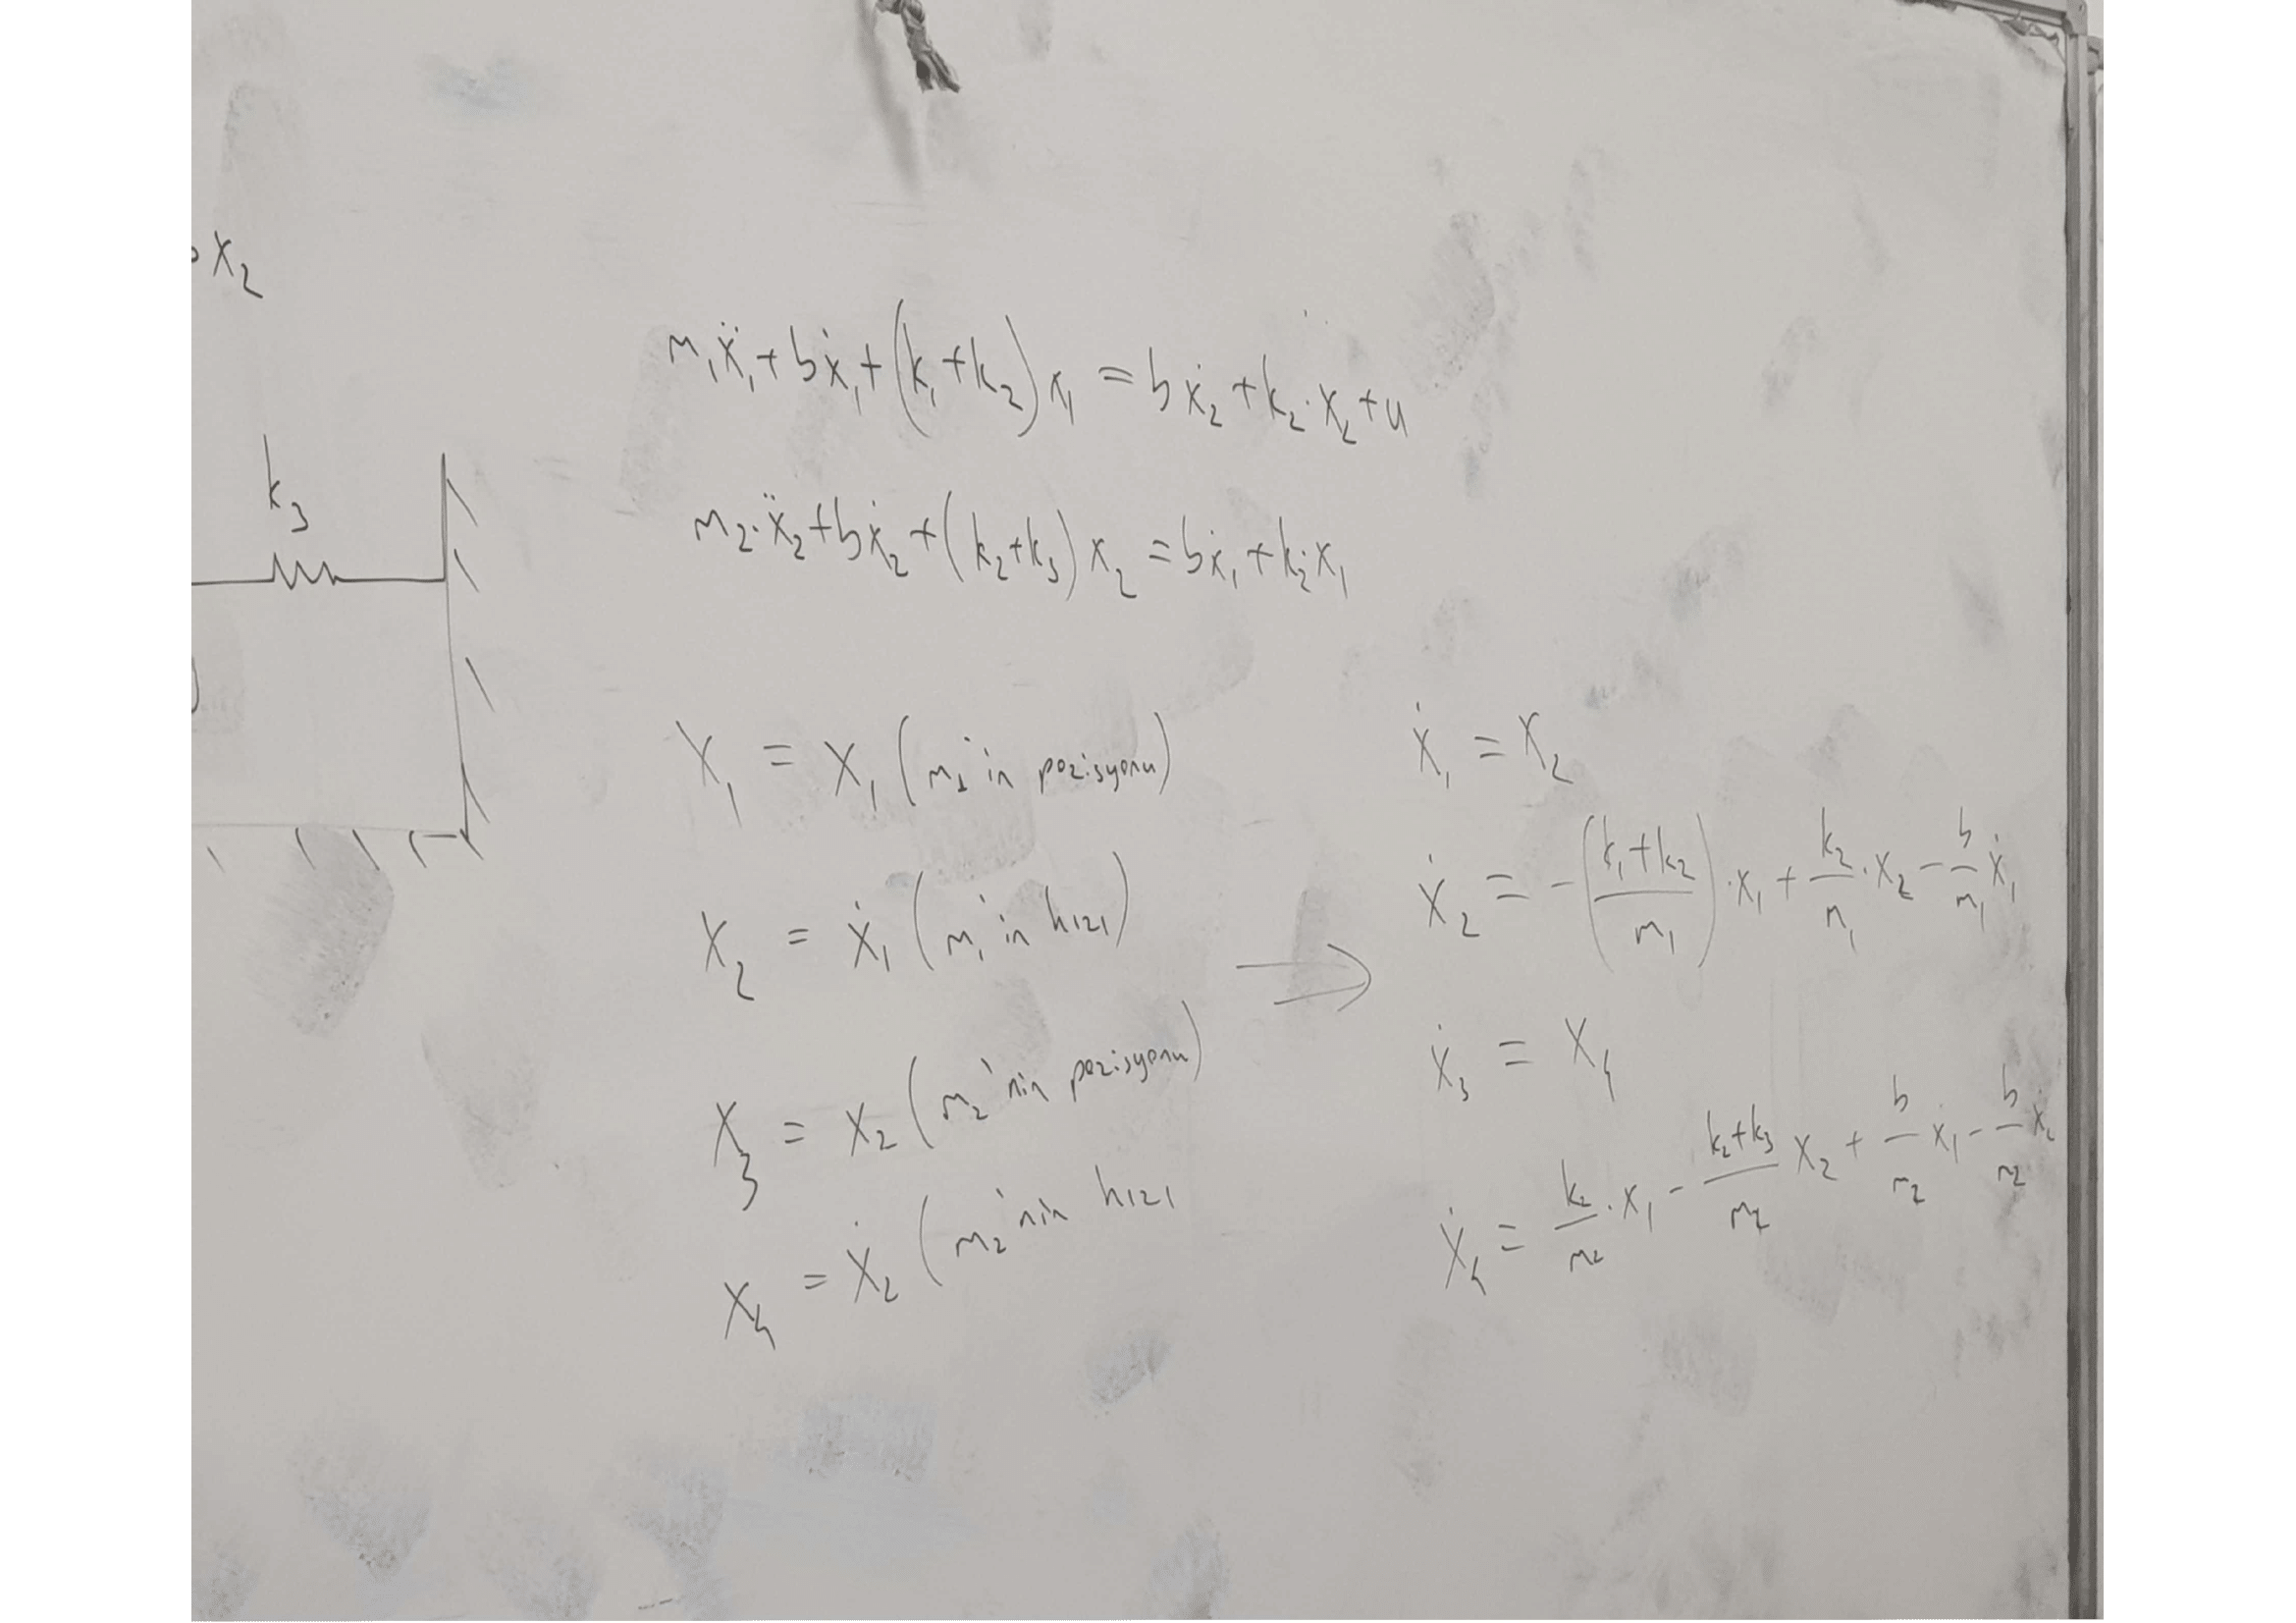 x₂
k₃
m₁ẍ₁ + bẋ₁ + (k₁ + k₂) x₁ = bẋ₂ + k₂·x₂ + u
m₂·ẍ₂ + bẋ₂ + (k₂+k₃) x₂ = bẋ₁ + k₂·x₁
x₁ = x₁ (m₁'in pozisyonu)
x₂ = ẋ₁ (m₁'in hızı)
x₃ = x₂ (m₂'nin pozisyonu)
x₄ = ẋ₂ (m₂'nin hızı
⇒
ẋ₁ = x₂
ẋ₂ = -((k₁+k₂)/m₁)·x₁ + k₂/m₁·x₂ - b/m₁ ẋ₁
ẋ₃ = x₄
ẋ₄ = k₂/m₂·x₁ - (k₂+k₃)/m₂ x₂ + b/m₂ ẋ₁ - b/m₂ ẋ₂